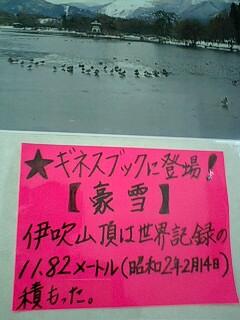 ★ギネスブックに登場!
【豪雪】
伊吹山頂は世界記録の
11.82メートル(昭和2年2月14日)
積もった。